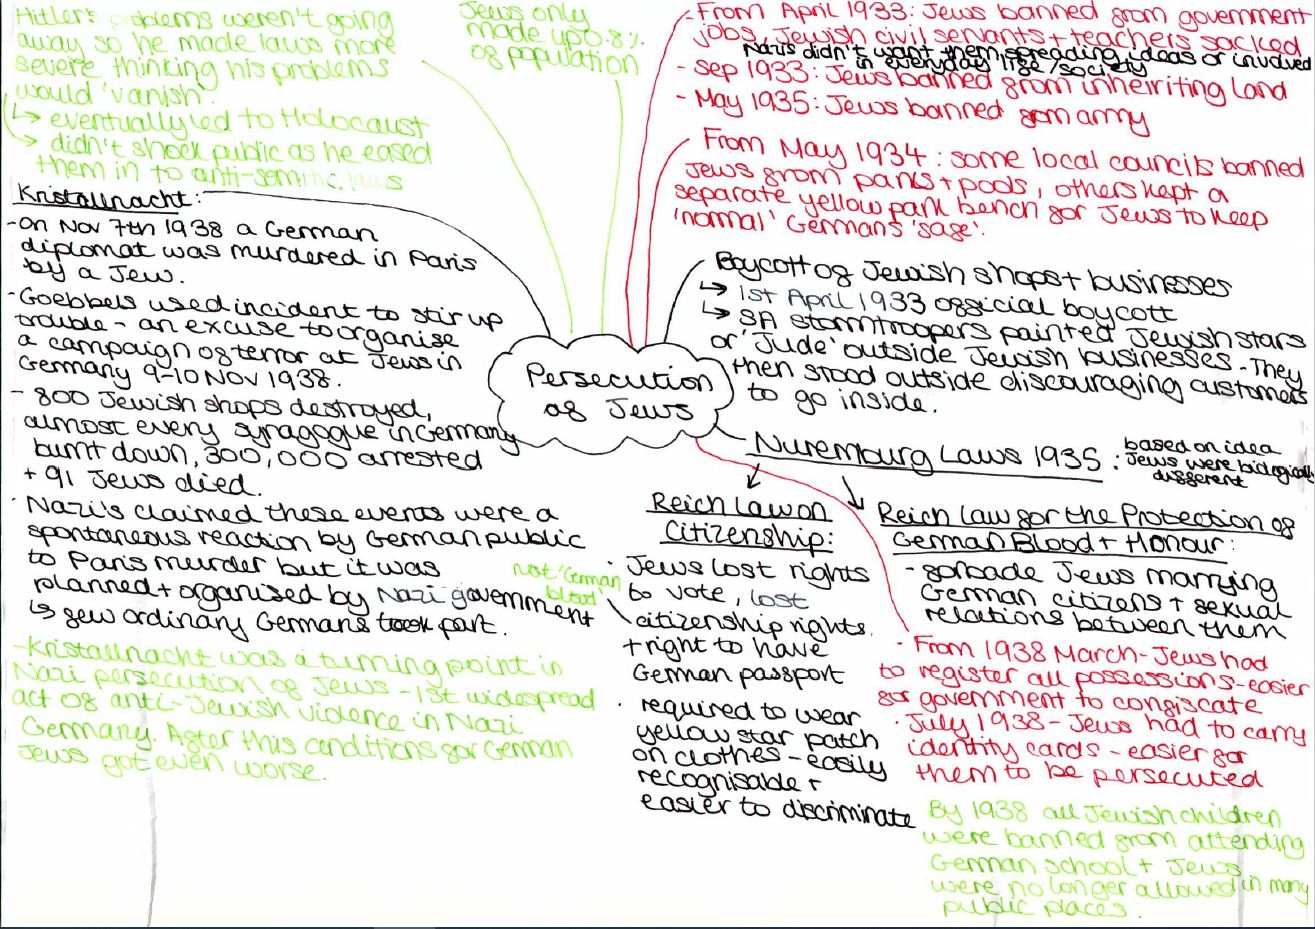 Hitler's problems weren't going
away so he made laws more
severe thinking his problems
would 'vanish'.
↳ eventually led to Holocaust
↳ didn't shock public as he eased
them in to anti-semitic laws
Jews only
made up 0.8%
of population
- From April 1933: Jews banned from government
jobs, Jewish civil servants + teachers sacked
Nazis didn't want them spreading ideas or involved
in everyday life/society
- Sep 1933: Jews banned from inheiriting land
- May 1935: Jews banned from army
- From May 1934: some local councils banned
Jews from parks + pools, others kept a
separate yellow park bench for Jews to keep
'normal' Germans 'safe'.
Kristallnacht:
- on Nov 7th 1938 a German
diplomat was murdered in Paris
by a Jew.
- Goebbels used incident to stir up
trouble - an excuse to organise
a campaign of terror at Jews in
Germany 9-10 Nov 1938.
- 800 Jewish shops destroyed,
almost every synagogue in Germany
burnt down, 300,000 arrested
+ 91 Jews died.
· Nazi's claimed these events were a
spontaneous reaction by German public
to Paris murder but it was
planned + organised by Nazi government
↳ few ordinary Germans took part.
- Kristallnacht was a turning point in
Nazi persecution of Jews - 1st widespread
act of anti-Jewish violence in Nazi
Germany. After this conditions for German
Jews got even worse.
Persecution
of Jews
Boycott of Jewish shops + businesses
↳ 1st April 1933 official boycott
↳ SA stormtroopers painted Jewish stars
or 'Jude' outside Jewish businesses. They
then stood outside discouraging customers
to go inside.
Nuremburg Laws 1935 :
based on idea
Jews were biologically
different
Reich Law on
Citizenship:
· Jews lost rights
to vote, lost
citizenship rights.
+ right to have
German passport
not 'German
blood'
· required to wear
yellow star patch
on clothes - easily
recognisable +
easier to discriminate
Reich Law for the Protection of
German Blood + Honour:
- forbade Jews marrying
German citizens + sexual
relations between them
· From 1938 March - Jews had
to register all possessions - easier
for government to confiscate
· July 1938 - Jews had to carry
identity cards - easier for
them to be persecuted
By 1938 all Jewish children
were banned from attending
German school + Jews
were no longer allowed in many
public places.